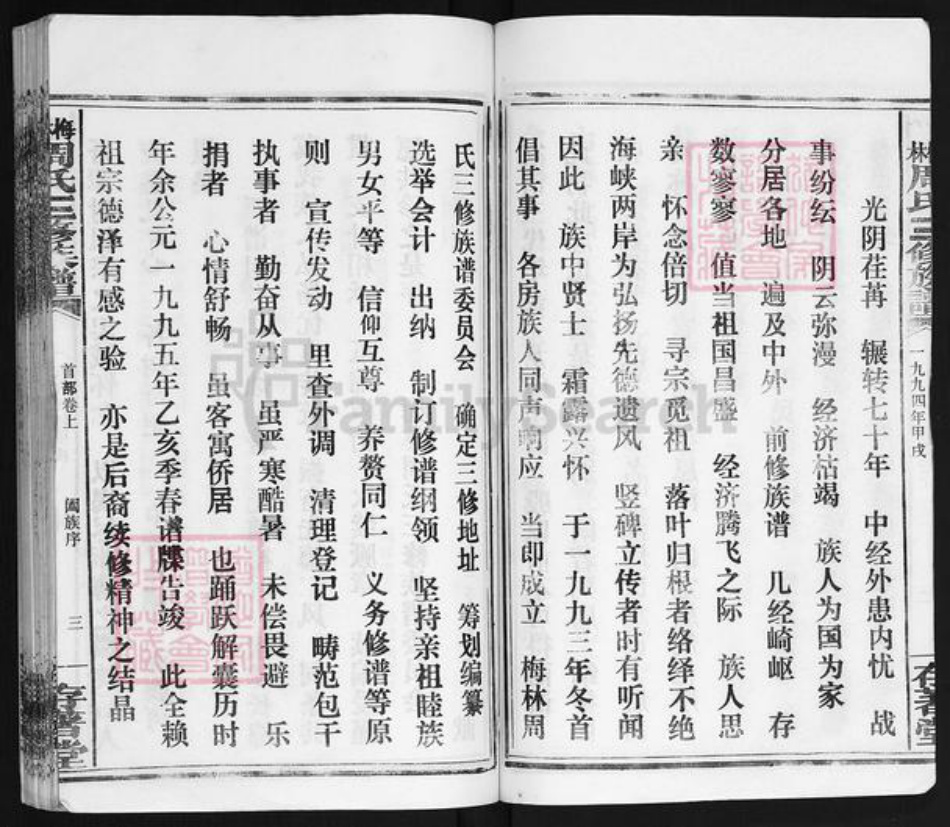 光阴荏苒　辗转七十年　中经外患内忧　战
事纷纭　阴云弥漫　经济枯竭　族人为国为家
分居各地　遍及中外　前修族谱　几经崎岖　存
数寥寥　值当祖国昌盛　经济腾飞之际　族人思
亲　怀念倍切　寻宗觅祖　落叶归根者络绎不绝
海峡两岸为弘扬先德遗风　竖碑立传者时有听闻
因此　族中贤士　霜露兴怀　于一九九三年冬首
倡其事　各房族人同声响应　当即成立　梅林周
林周氏三修族譜
一九九四年甲戌
存著堂
氏三修族谱委员会　确定三修地址　筹划编纂
选举会计　出纳　制订修谱纲领　坚持亲祖睦族
男女平等　信仰互尊　养赘同仁　义务修谱等原
则　宣传发动　里查外调　清理登记　畴范包干
执事者　勤奋从事　虽严寒酷暑　未偿畏避　乐
捐者　心情舒畅　虽客寓侨居　也踊跃解囊历时
年余公元一九九五年乙亥季春谱牒告竣　此全赖
祖宗德泽有感之验　亦是后裔续修精神之结晶
梅周氏三修族譜
首部卷上
阖族序
三
存著堂
FamilySearch